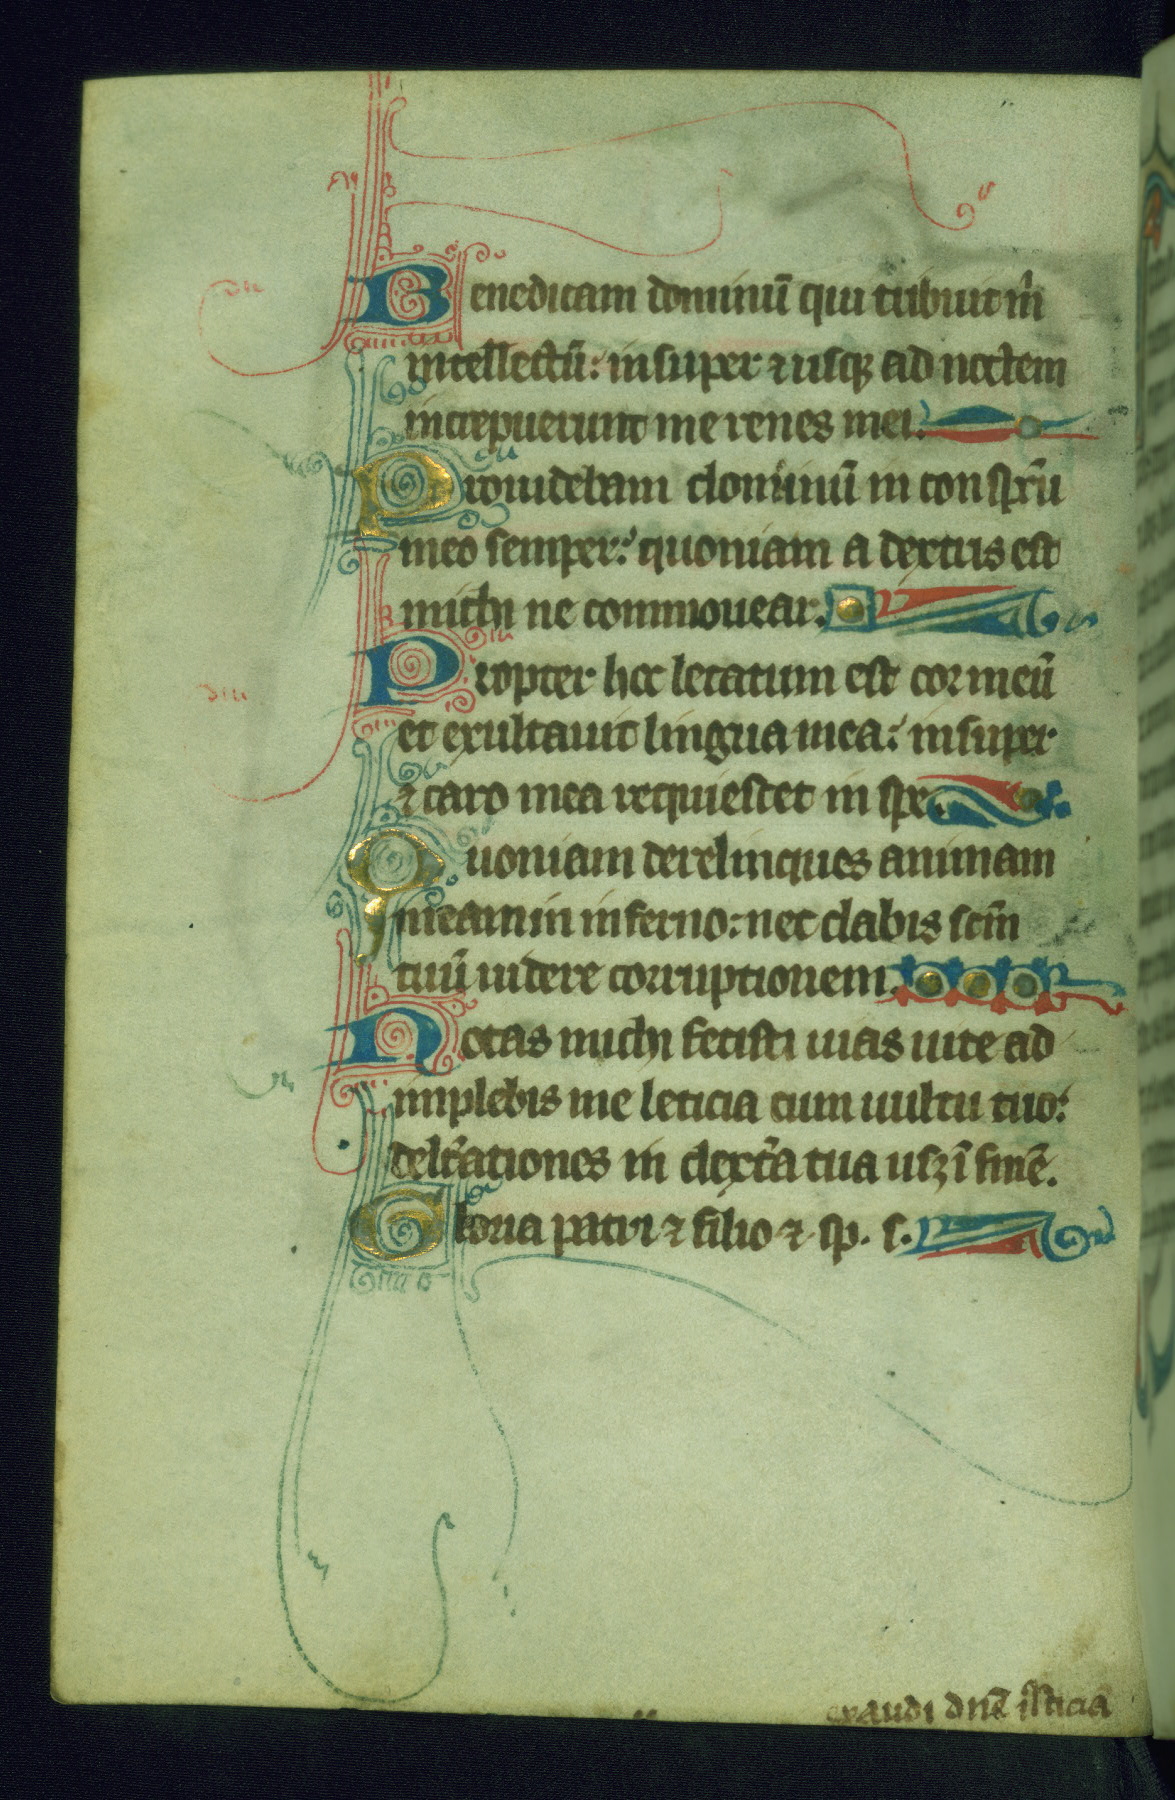 Benedicam dominū qui tribuit m̄
intellectū: insuper ⁊ usqꝫ ad noctem
increpuerunt me renes mei.
Prouidebam dominū in conspc̄u
meo semper: quoniam a dextris est
michi ne commouear.
Propter hoc letatum est cor meū
et exultauit lingua mea: insuper
⁊ caro mea requiescet in spe.
Quoniam derelinques animam
meam in inferno: nec dabis scm̄
tuū uidere corruptionem.
Notas michi fecisti uias uite ad
implebis me leticia cum uultu tuo:
delc̄ationes in dext̄a tua usqꝫ ī finē.
Gloria patri ⁊ filio ⁊ sp. s.
exaudi dn̄e iusticiā